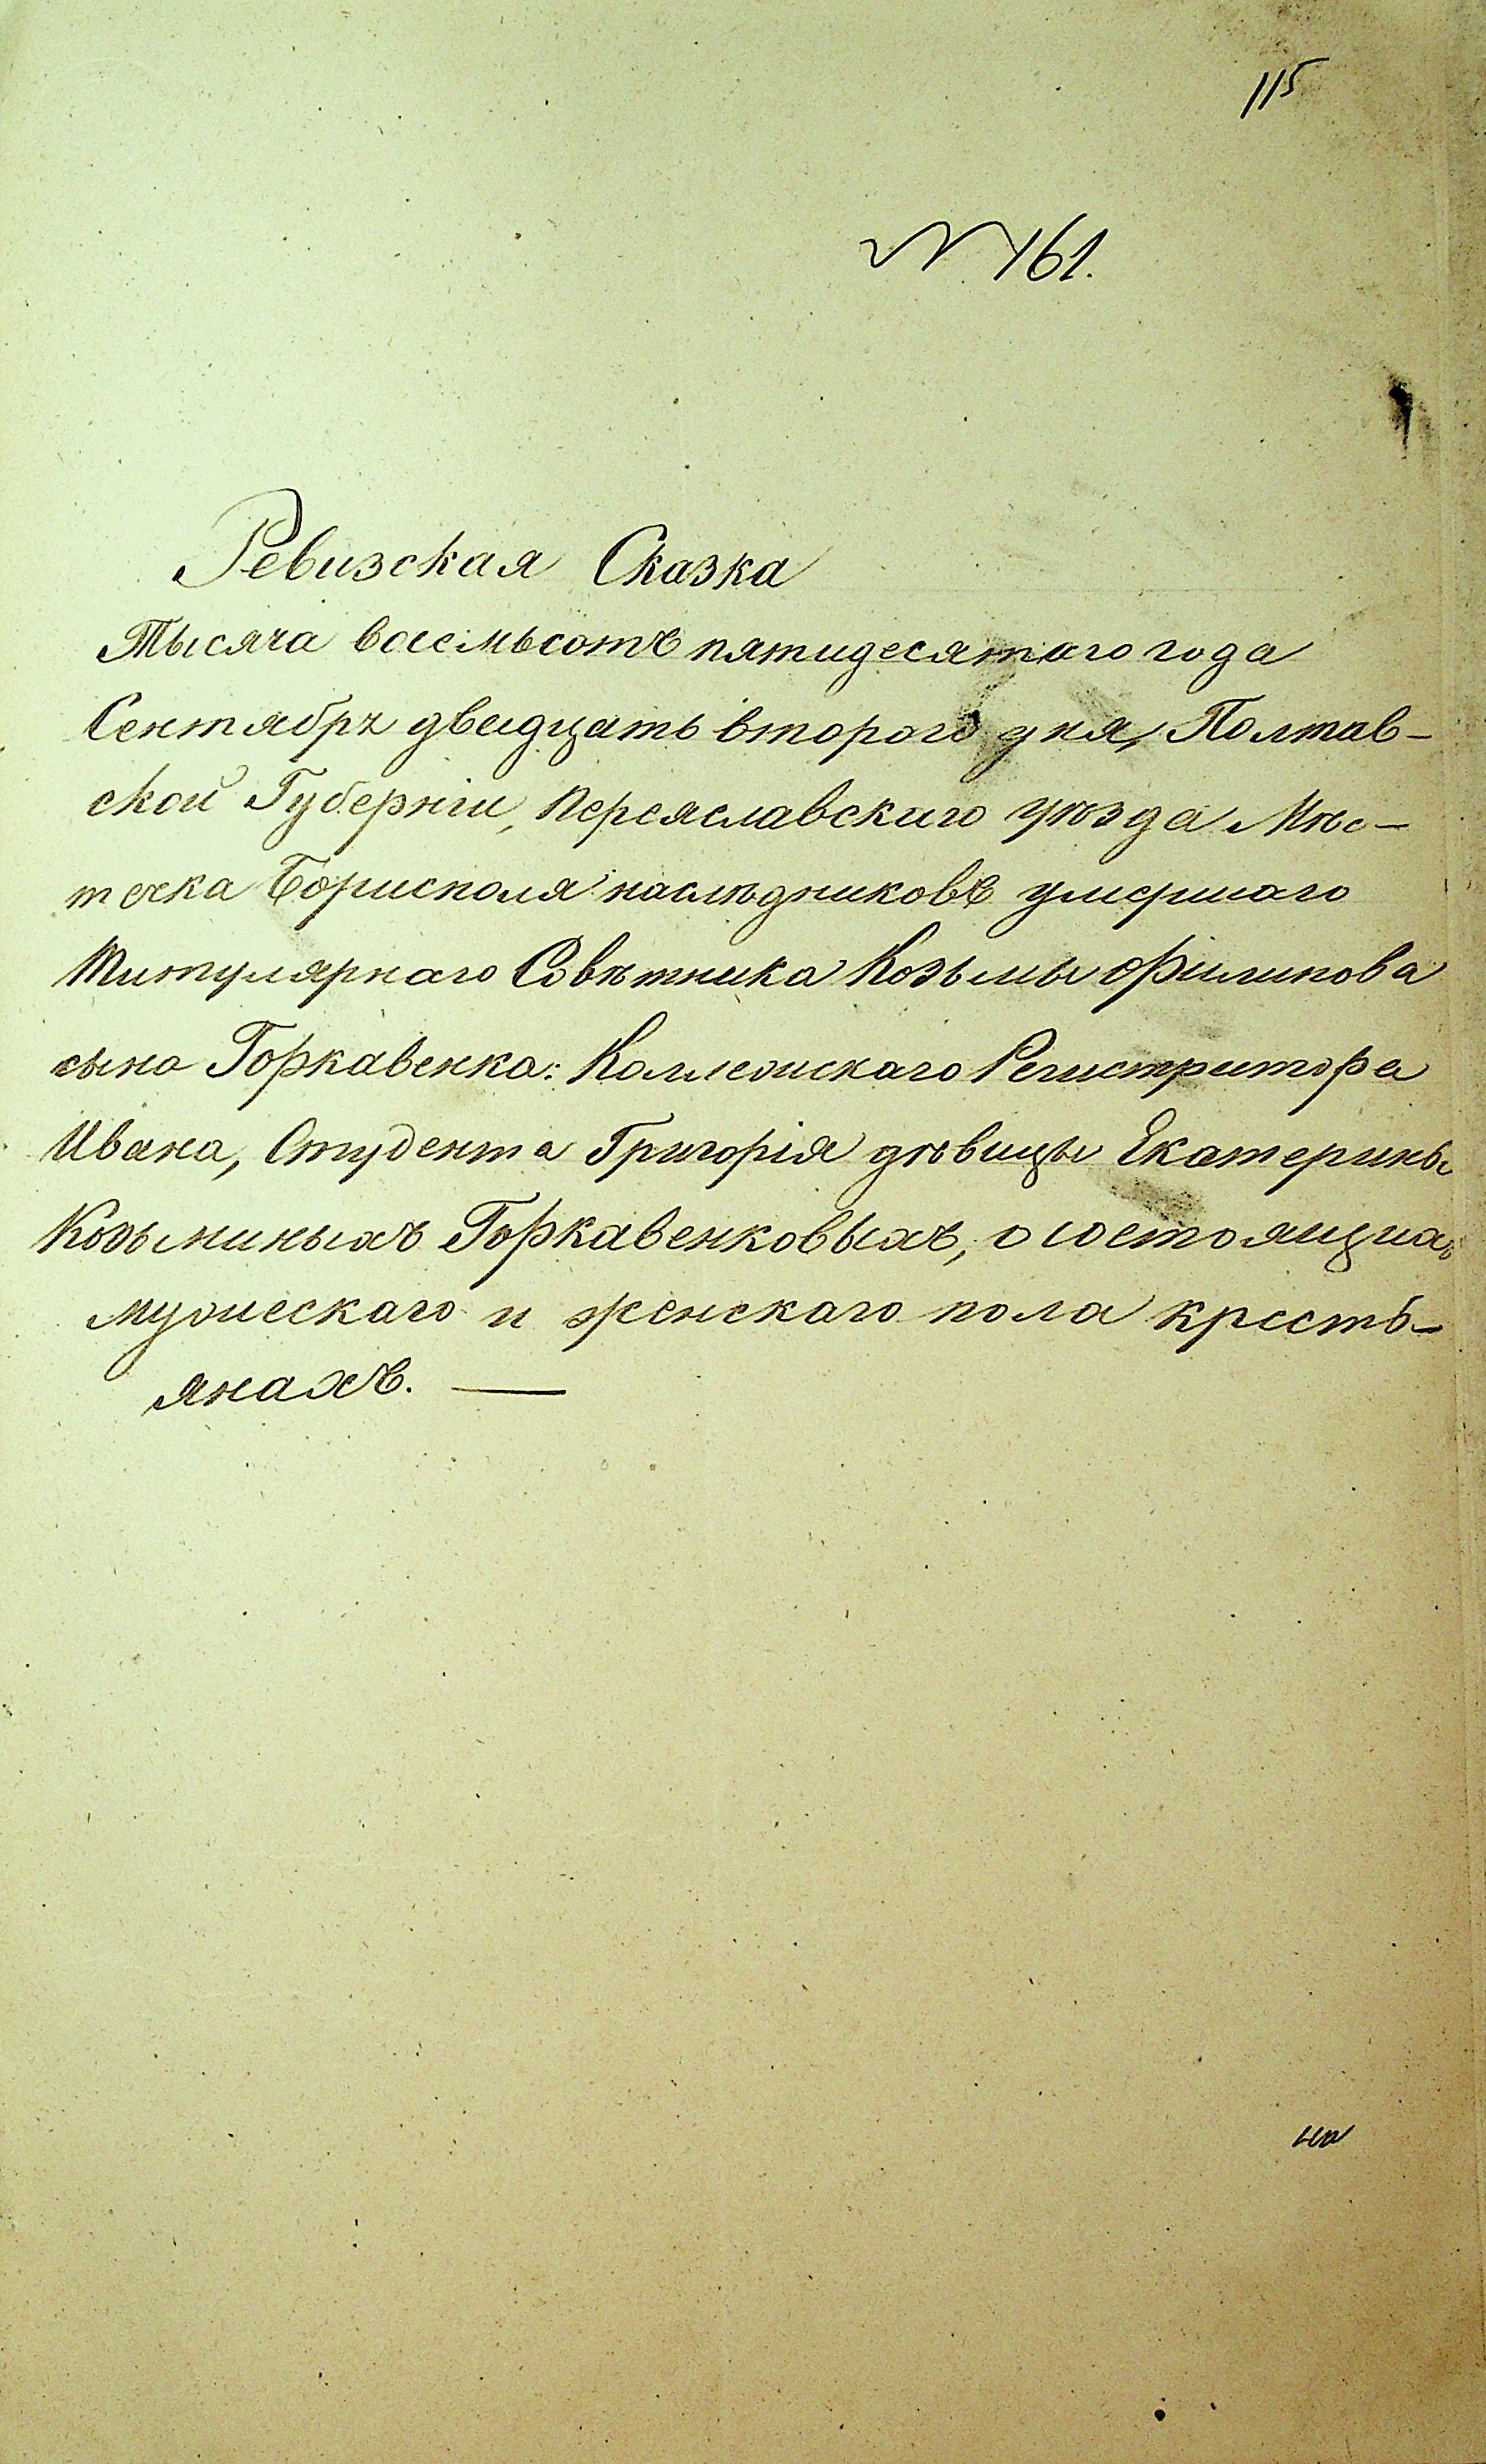 115
№ 161.
Ревизская Сказка
Тысяча восемьсотъ пятидесятаго года
Сентября двадцать втораго дня, Полтав-
ской Губерніи, Переяславскаго уѣзда Мѣс-
течка Борисполя наслѣдниковъ умершаго
Титулярнаго Совѣтника Козьмы Филипова
сына Горкавенка: Коллежскаго Регистратора
Ивана, Студента Григорія дѣвицы Екатерины
Козьминыхъ Горкавенковыхъ, о состоящихъ
мужескаго и женскаго пола кресть-
янахъ. —